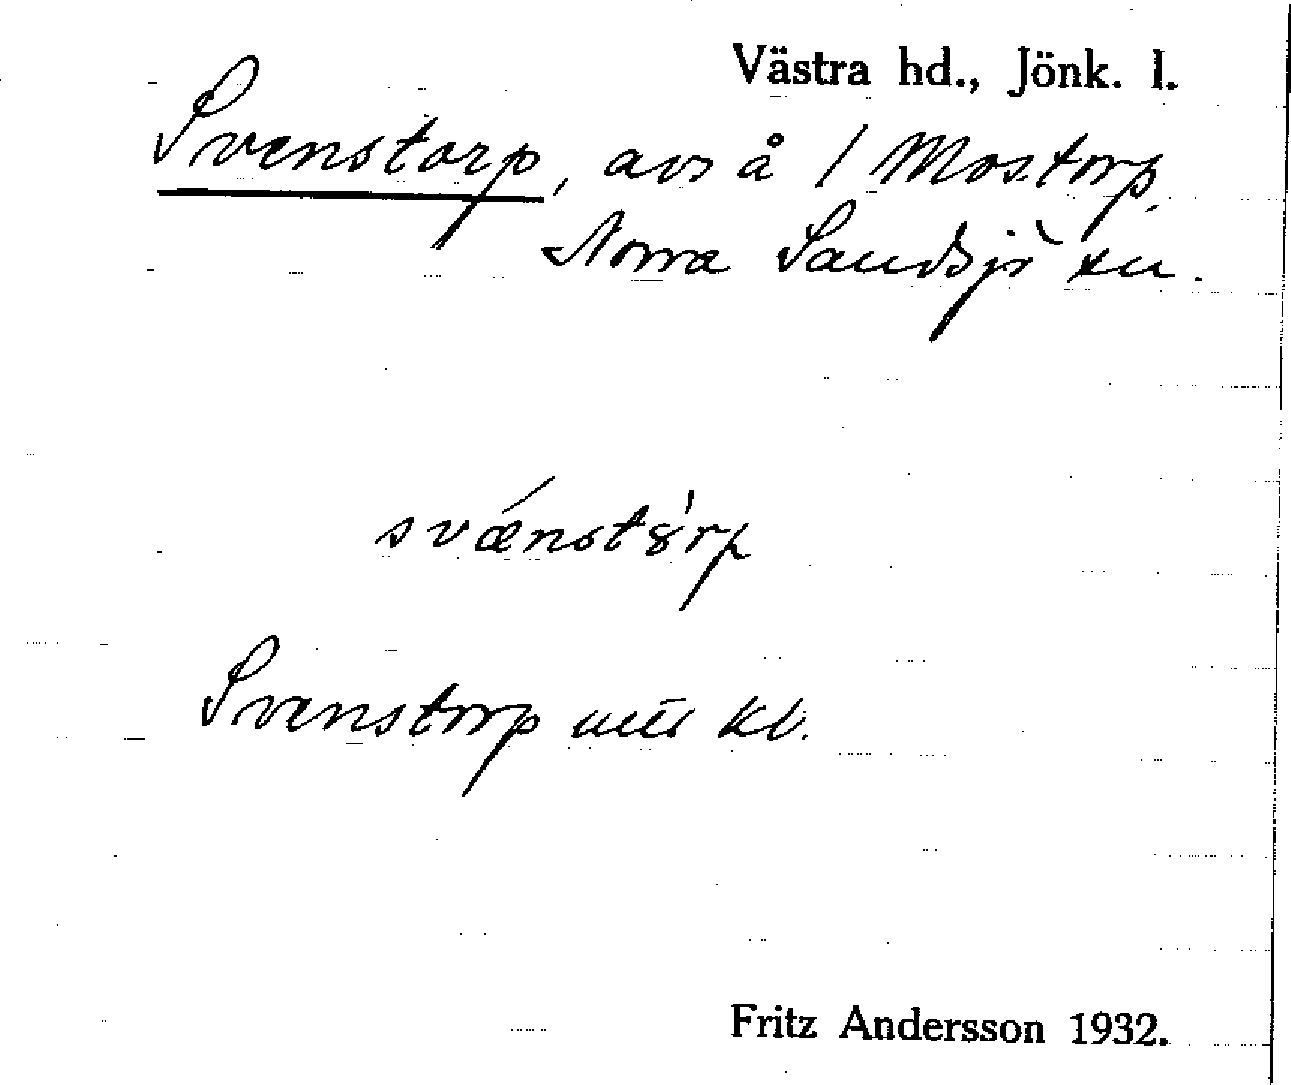 Västra hd., Jönk. l.
Svenstorp, avs å 1 Mostorp.
Norra Sandsjö sn.
svǽnstȣ́rp
Svenstorp utts kl.
Fritz Andersson 1932.